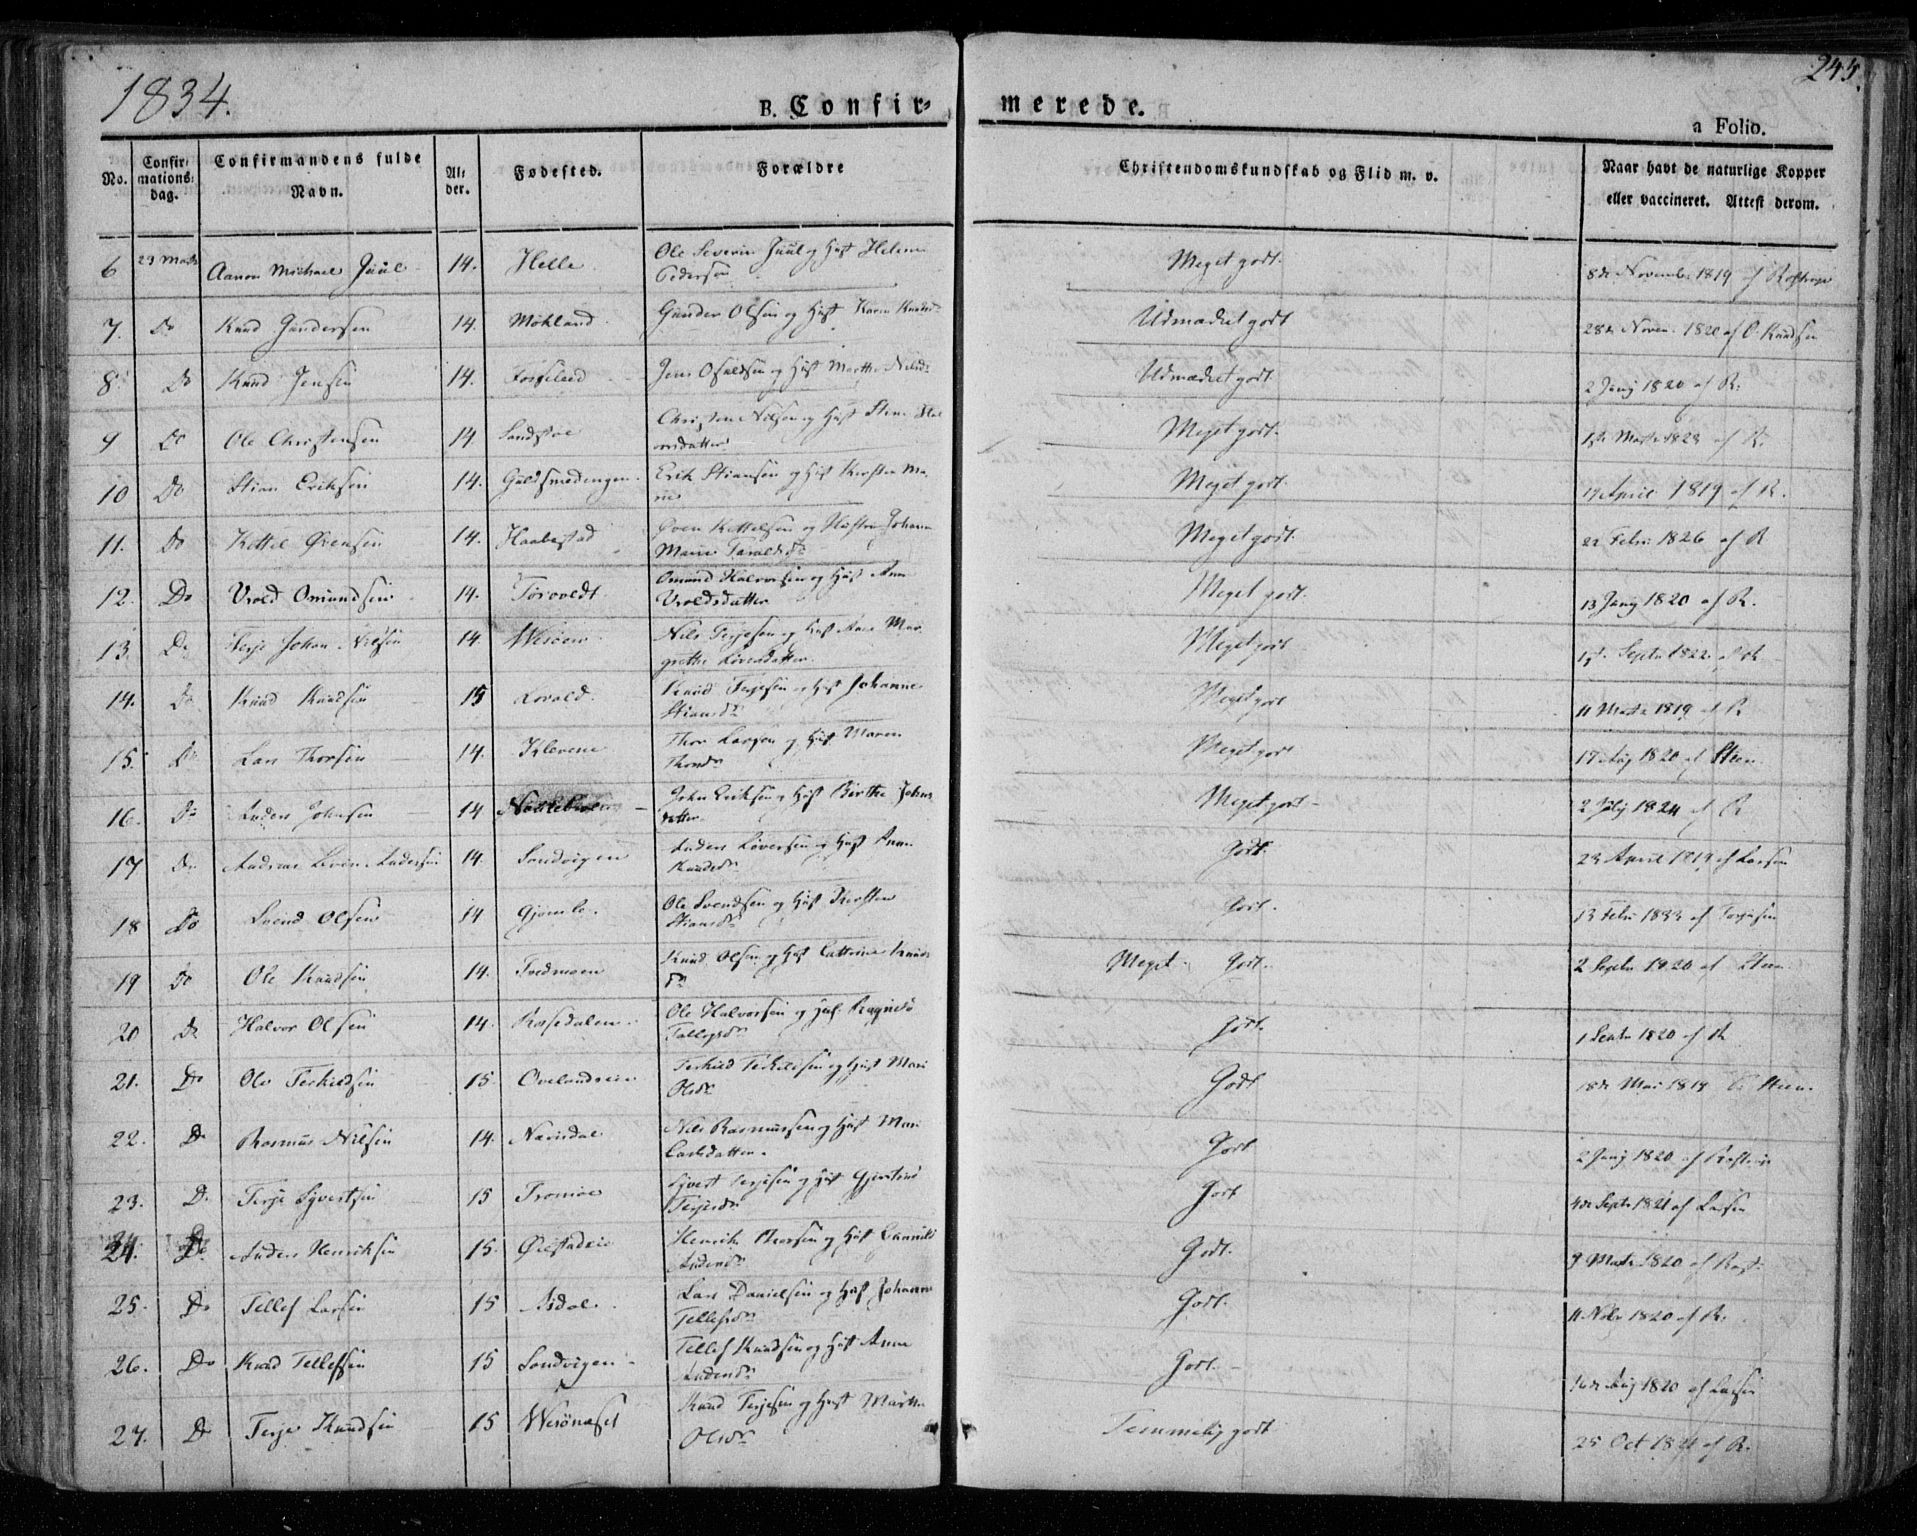 1834.
245.
B. Confir-
merede.
a Folio.
No.
Confir-
mations-
dag.
Confirmandens fulde
Navn.
Al-
der.
Fødested.
Forældre
Christendomskundskab og Flid m. v.
Naar havt de naturlige Kopper
eller vaccineret. Attest derom.
6 23 Marts Aanon Michael Juul 14. Helle Ole Severin Juul og Hust Helene Meget godt.
Pedersen 8de Novemb. 1819 af
7. Do Knud Gundersen 14. Mökland Gunder Olsen og Hust Karen Knudsd Udmærket godt 28de Novem. 1820 af O. Knudsen
8 Do Knud Jensen 14. Jens Osuldsen og Hust Marthe Nielsd Udmærket godt 2 Junij 1820 af R.
9 Do Ole Christensen 14 Sandstøe Christen Nilsen og Hust Meget godt.
datter 1823 af R.
10 Do Stian Eriksen 14. Guldsmedengen Erik Stiansen og Hust Kirsten Ma- Meget godt.
rie 17 April 1819 af R.
11. Do Kettel Øvensen 14. Haabestad Øven Kettelsen og Hustru Johanne Meget godt.
Marie Taraldsdr 22 Febr 1826 af R
12. Do Vrold Omundsen 14. Torvoldt Omund Halvorsen og Hust Ane Meget godt.
Vroldsdatter 13 Junij 1820 af R.
13. Do Terje Johan Nilsen 14 Werøen Nils Terjesen og Hust Ane Mar- Meget godt
grethe Sørensdatter. Septr 1822 af R
14. Do Knud Knudsen 15 Lovold Knud Terjesen og Hust Johanne Meget godt
Stiansdr 11 Marts 1819 af R
15. Do Lars Thorsen 14. Klevene Thor Larsen og Hust Maren Meget godt
Thorsdr 17 Aug 1820 af Steen
16. Do Anders Johnsen 14 John Eriksen og Hust Birthe Johns Meget godt
datter 2 Julij 1824 af R
17 Do Andreas Andersen 14. Sandvigen Anders og Hust Anne Godt.
Knudsdr 23 April 1819 af Larsen
18 Do Svend Olsen 14 Gjømle. Ole Svendsen og Hust Kirsten Godt.
Stiansdr 13 Febr 1833 af Terjesen
19 Do Ole Knudsen 14. Knud Olsen og Hust Cathrine Knuds Meget Godt.
dr 2 Septr 1820 af Steen
20 Do Halvor Olsen 14. Rosedalen Ole Halvorsen og Hust Ragnild Godt.
Tellefsdr 1 Septr 1820 af R
21. Do Ole Terkildsen 15 Terkild Terkildsen og Hust Mari Godt
Olsdr 18de Mai 1818 Steen
22. Do Rasmus Nilsen 14. Næsdal Nils Rasmussen og Hust Mari Godt
Carlsdatter. 2 Junij 1820 af
23. Do Terje Syvertsen 15 Tromöe Syvert Terjesen og Hust Godt
Terjesdr 4de Septr 1821 af Larsen
24. Do Anders Henriksen 15. Henrik Thorsen og Hust Gunnild Godt.
Andersdr 9 Marts 1820 af
25. Do Tellef Larsen 15 Lars Danielsen og Hust Johanne Godt.
Tellefsdr 11 Nobr 1820 af R.
26. Do Knud Tellefsen 15 Sandvigen Tellef Knudsen og Hust Anne Godt.
Andersdr 16de Aug 1820 af Larsen
27. Do Terje Knudsen 15 Werönæset Knud Terjesen og Hust Marthe Temmelig godt
Olsdr 25 Oct 1821 af R.